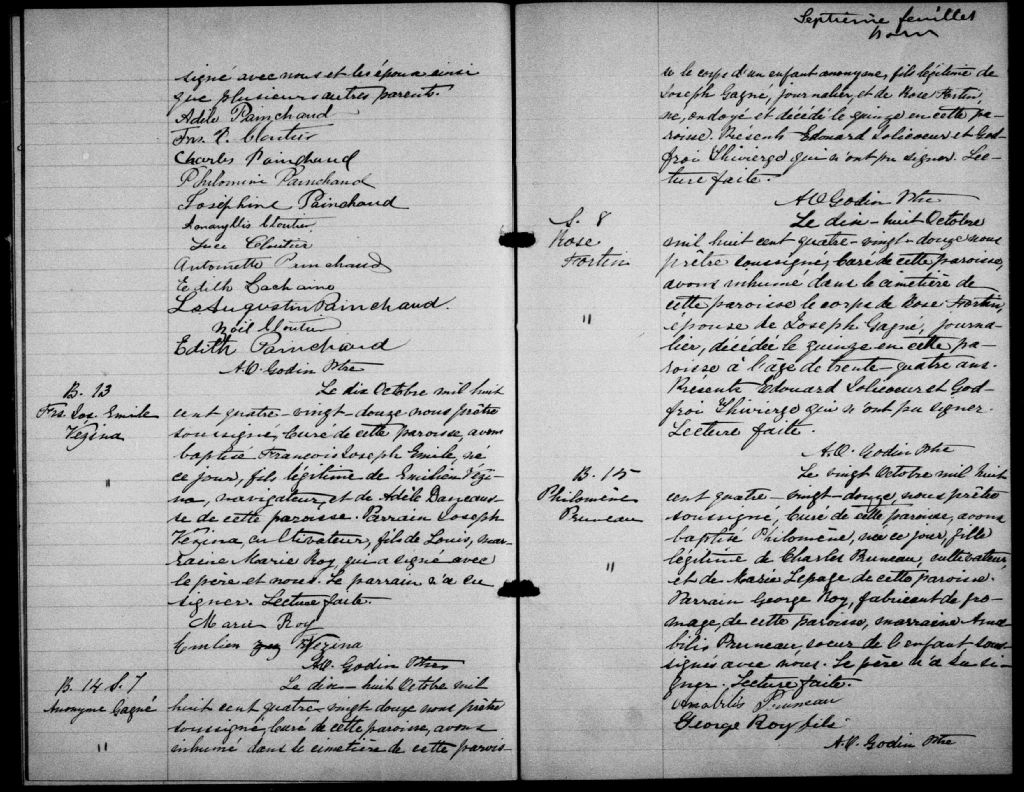 signé avec nous et les époux ainsi
que plusieurs autres parents.
Adèle Painchaud
Frs. X. Cloutier
Charles Painchaud
Philomine Painchaud
Joséphine Painchaud
Amaryllis Cloutier
Luce Cloutier
Antoinette Painchaud
Edith Lachaine
Ls Augustin Painchaud.
Noël Cloutier
Edith Painchaud
A.O. Godin Ptre
B. 13
Frs. Jos. Emile
Vézina
"
Le dix Octobre mil huit
cent quatre-vingt-douze nous prêtre
soussigné, Curé de cette paroisse, avons
baptisé François Joseph Emile, né
ce jour, fils légitime de Emilien Vézi-
na, navigateur, et de Adèle
de cette paroisse. Parrain Joseph
Vézina cultivateur, fils de Louis, mar-
raine Marie Roy, qui a signé avec
le père et nous. Le parrain n'a su
signer. Lecture faite.
Marie Roy
Emilien Vézina
A.O. Godin Ptre
B. 14 S. 7
Anonyme Gagné
"
Le dix-huit Octobre mil
huit cent quatre-vingt douze nous prêtre
soussigné, Curé de cette paroisse, avons
inhumé dans le cimetière de cette parois-
Septième feuillet
se le corps d'un enfant anonyme, fils légitime de
Joseph Gagné, journalier, et de Rose Fortin,
né, ondoyé et décédé le quinze en cette pa-
roisse. Présents Edouard Jolicoeur et God-
froi Thivierge qui n'ont pu signer. Lec-
ture faite.
A.O. Godin Ptre
S. 8
Rose
Fortin
"
Le dix-huit Octobre
mil huit cent quatre-vingt-douze nous
prêtre soussigné, Curé de cette paroisse,
avons inhumé dans le cimetière de
cette paroisse le corps de Rose Fortin,
épouse de Joseph Gagné, journa-
lier, décédée le quinze en cette pa-
roisse à l'âge de trente-quatre ans.
Présents Edouard Jolicoeur et God-
froi Thivierge qui n'ont pu signer.
Lecture faite.
A.O. Godin Ptre
B. 15
Philomène
Pruneau
"
Le vingt Octobre mil huit
cent quatre-vingt-douze, nous prêtre
soussigné, Curé de cette paroisse, avons
baptisé Philomène, née ce jour, fille
légitime de Charles Pruneau, cultivateur,
et de Marie Lepage de cette paroisse.
Parrain George Roy, fabricant de fro-
mage, de cette paroisse, marraine Ama-
bilis Pruneau, soeur de l'enfant sous-
signés avec nous. Le père n'a su si-
gner. Lecture faite.
Amabilis Pruneau
George Roy fils
A.O. Godin Ptre